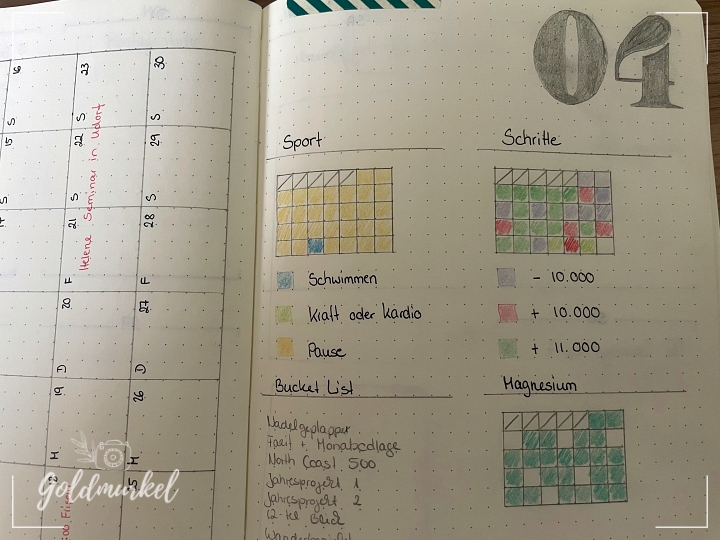 04
Sport
Schritte
Schwimmen
Kraft oder Kardio
Pause
- 10.000
+ 10.000
+ 11.000
Bucket List
Nadelgeplapper
Fazit + Monatscollage
North Coast 500
Jahresprojekt 1
Jahresprojekt 2
12-tel Blick
Magnesium
16
23
30
S
S
15
22
29
S
S
S
21
28
Helene Seminar in Udorf
F
F
20
27
D
D
19
26
H
H
25
Goldmurkel